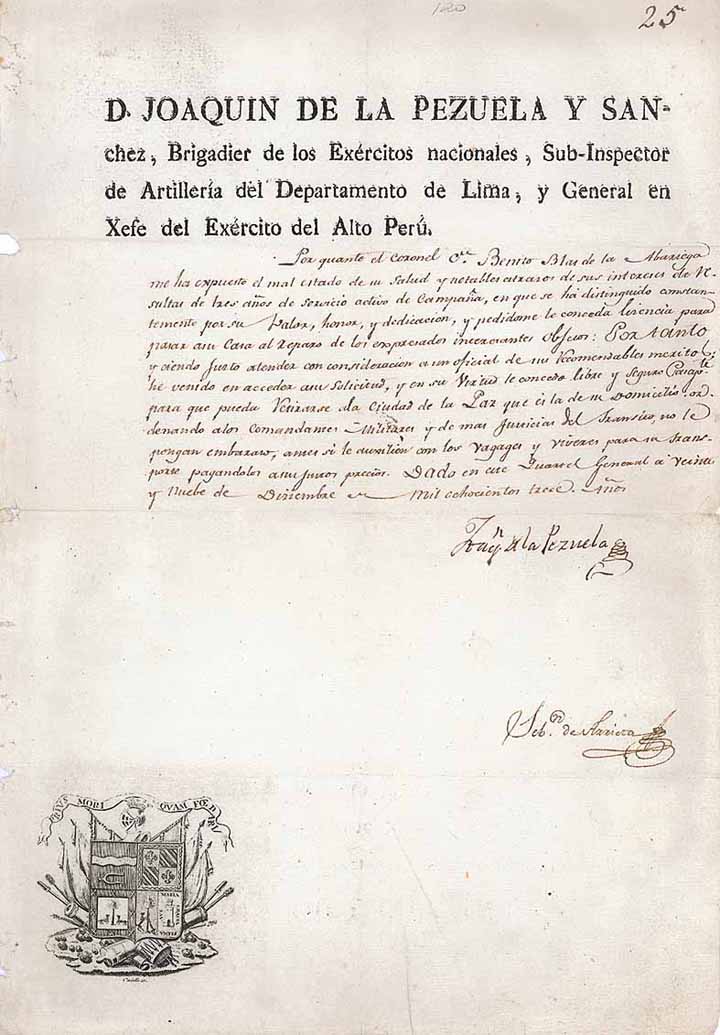 120
25
D. JOAQUIN DE LA PEZUELA Y SAN-
chez, Brigadier de los Exércitos nacionales, Sub-Inspector
de Artillería del Departamento de Lima, y General en
Xefe del Exército del Alto Perú.
Por quanto el Coronel Dn. Benito Blas de la Abariega
me ha expuesto el mal estado de su Salud y notables atrazos de sus intereses de re
sultas de tres años de servicio activo de Campaña, en que se ha distinguido constan-
temente por su Valor, honor, y dedicacion, y pedidome le conceda licencia para
pasar a su Casa al reparo de los expresados interesantes objetos: Por tanto
y ciendo Justo atender con consideracion a un oficial de su recomendables merito
he venido en acceder a su Solicitud, y en su Virtud le concedo libre y Seguro Pasapte
para que pueda retirarse a la Ciudad de la Paz que es la de su Domicilio, or-
denando a los Comandantes Militares y de mas Justicias del Transito, no le
pongan embarazo, antes si le auxilien con los vagages y viveres para su trans-
porte pagandolos a sus Justos precios. Dado en este Quartel General a veinte
y Nuebe de Diciembre de Mil ochocientos trece Años
Joaqn. de la Pezuela
Sebn. de Arrieta
MORI QUAM FOEDARI
MARIA
GRATIA
PLENA